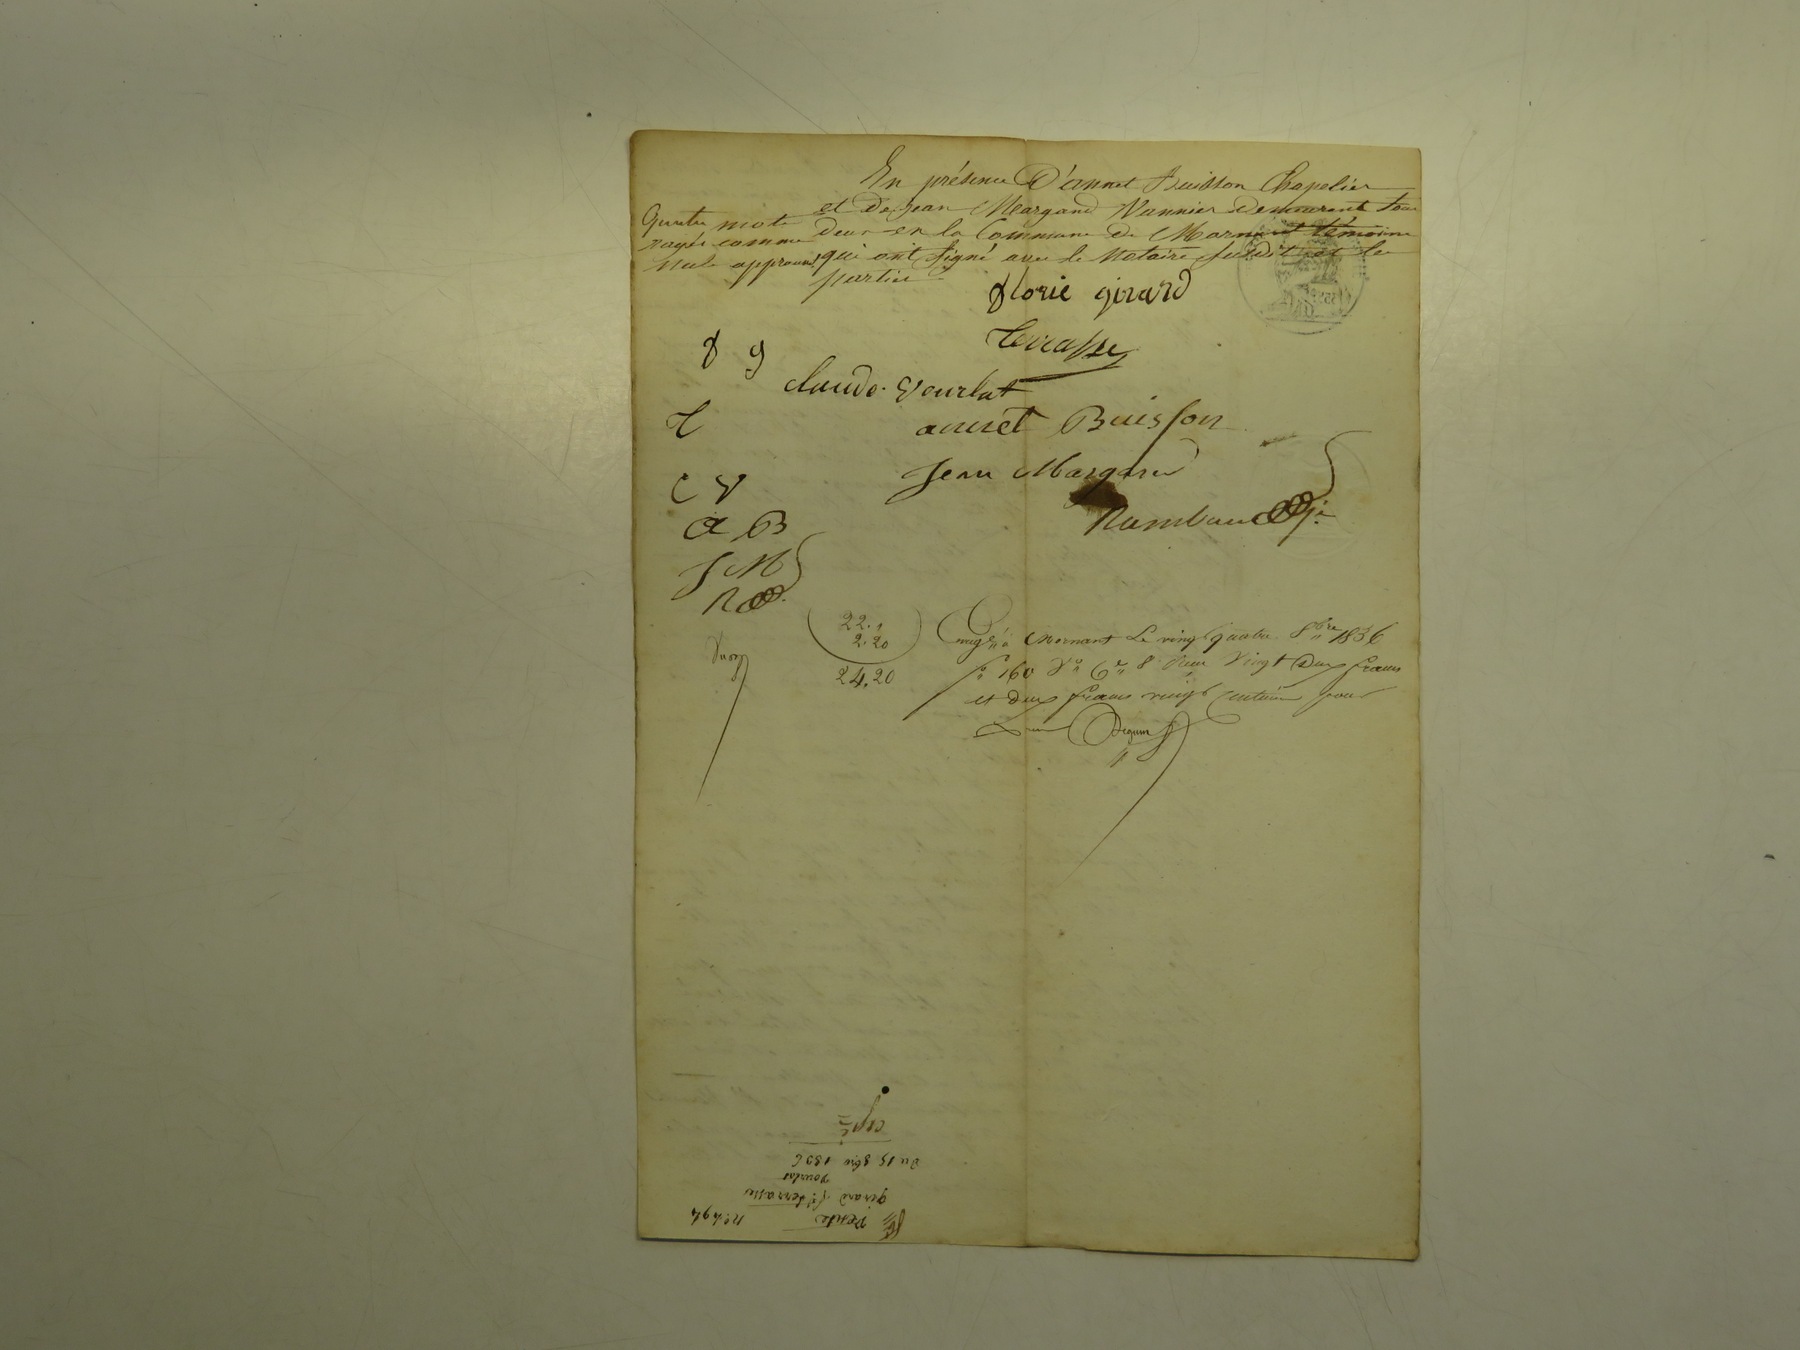 En présence D'annet Buisson Chapelier
et De Jean Margand Vannier Demeurant tous
deux en la Commune de Mornant témoins
qui ont signé avec le Notaire susdit et les
parties
Quatre mots
rayés comme
nuls approuvé
florie girard
terrasse
claude Vourlat
annet Buisson
Jean Margand
Rambaud
f g
t
C V
a B
J M
R
22.,
2.20
24.20
Enreg. à Mornant Le vingt quatre 8bre 1836
fo 160 Vo Ce 8 Reçu Vingt Deux francs
et deux francs vingt centimes pour
Vente No 494
girard fe terrasse
Vourlat
Du 15 8bre 1836